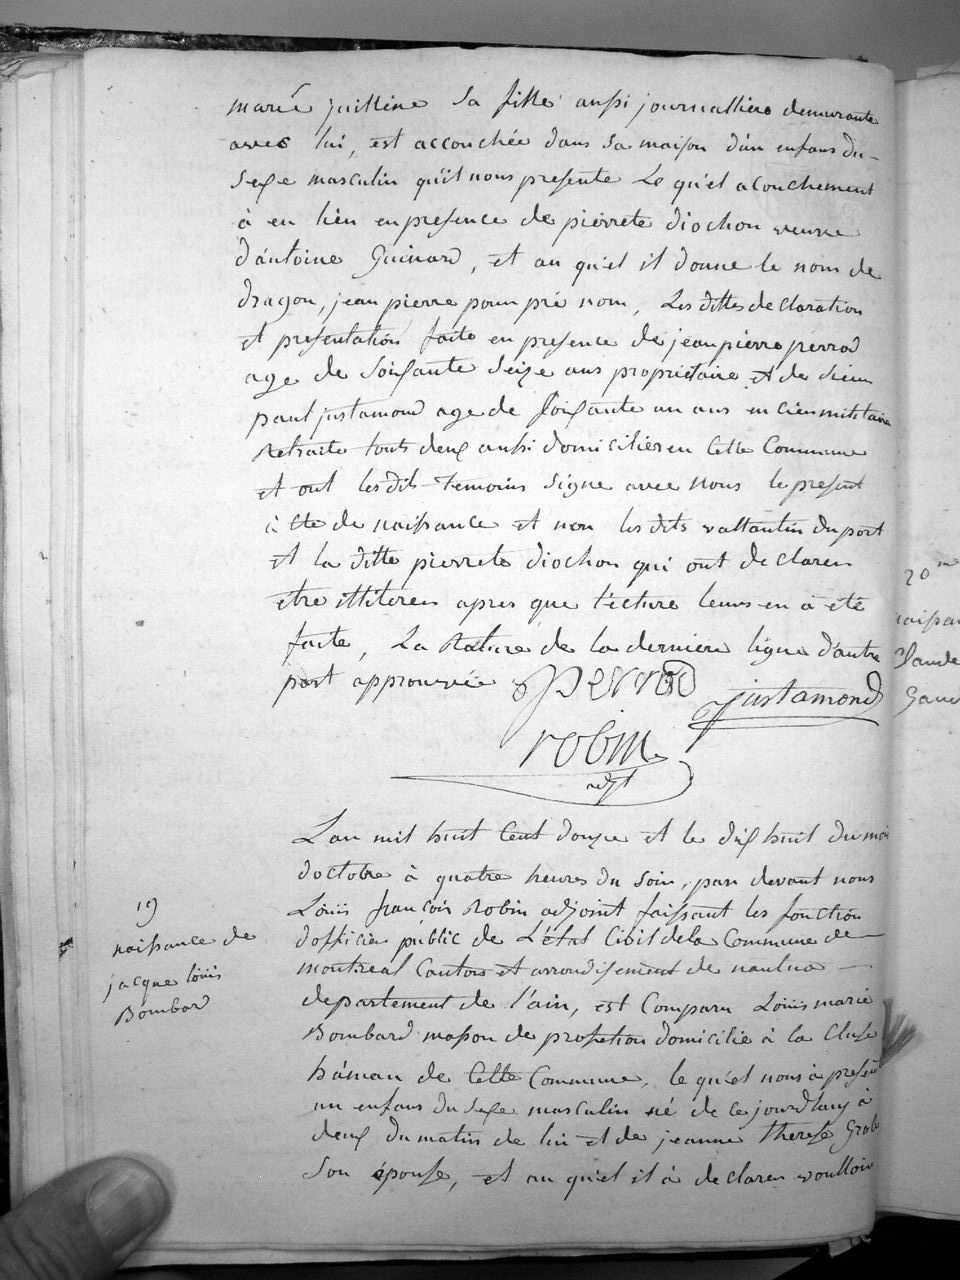 marie juilline sa fille aussi journalliere demurante
avec lui, est accouchée dans sa maison d'un enfans du
sexe masculin qu'il nous presente Le qu'el acouchement
à eu lieu en presence de pierrete diochon veuve
d'antoine Guinard, et au qu'el il donne le nom de
dragon, jean pierre pour pré nom, Les dittes declaration
et presentation faite en presence de jean pierre perrod
age de soixante seize ans propriétaire et de sieur
paul justamond age de soixante un ans encien militaire
retraite touts deux aussi domicilier en Cette Commune
et ont les dits temoins signe avec nous le present
à cte de naissance et non les dits vallantin duport
et la ditte pierrete diochon qui ont declarer
etre illiterer apres que l'ecture leurs en à eté
faite, La rature de la derniere ligne d'autre
part approuvée perrod justamond
robin
adjt
L'an mil huit Cent douze et le dix huit du mois
d'octobre à quatre heures du soir, par devant nous
Louis françois Robin adjoint faissant les fonction
d'officier public de L'état Cibil de la Commune de
montreal Canton et arrondisement de nantua
departement de l'ain, est Comparu Louis marie
Bombard masson de profession domicilie à la Cluse
hámau de Cette Commune, le qu'el nous à présenté
un enfans du sexe masculin né de ce jourdhuy à
deux du matin de lui et de jeanne therese Grobi
son épouse, et au qu'el il à declarer voulloir
19
naissance de
jacque louis
Bombard
20me
naissan
Claude